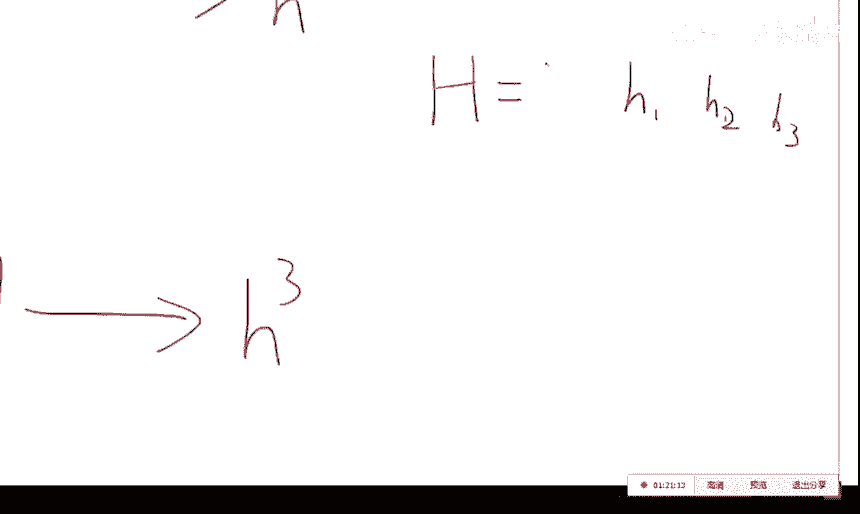 h
H = h₁ h₂ h₃
h³
01:21:13 高清 预览 退出分享